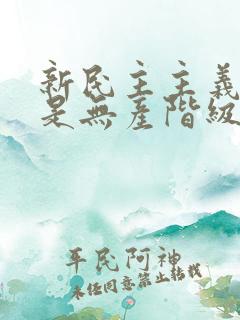 新民主主義
是無產階級
平民阿神
未经同意禁止转载